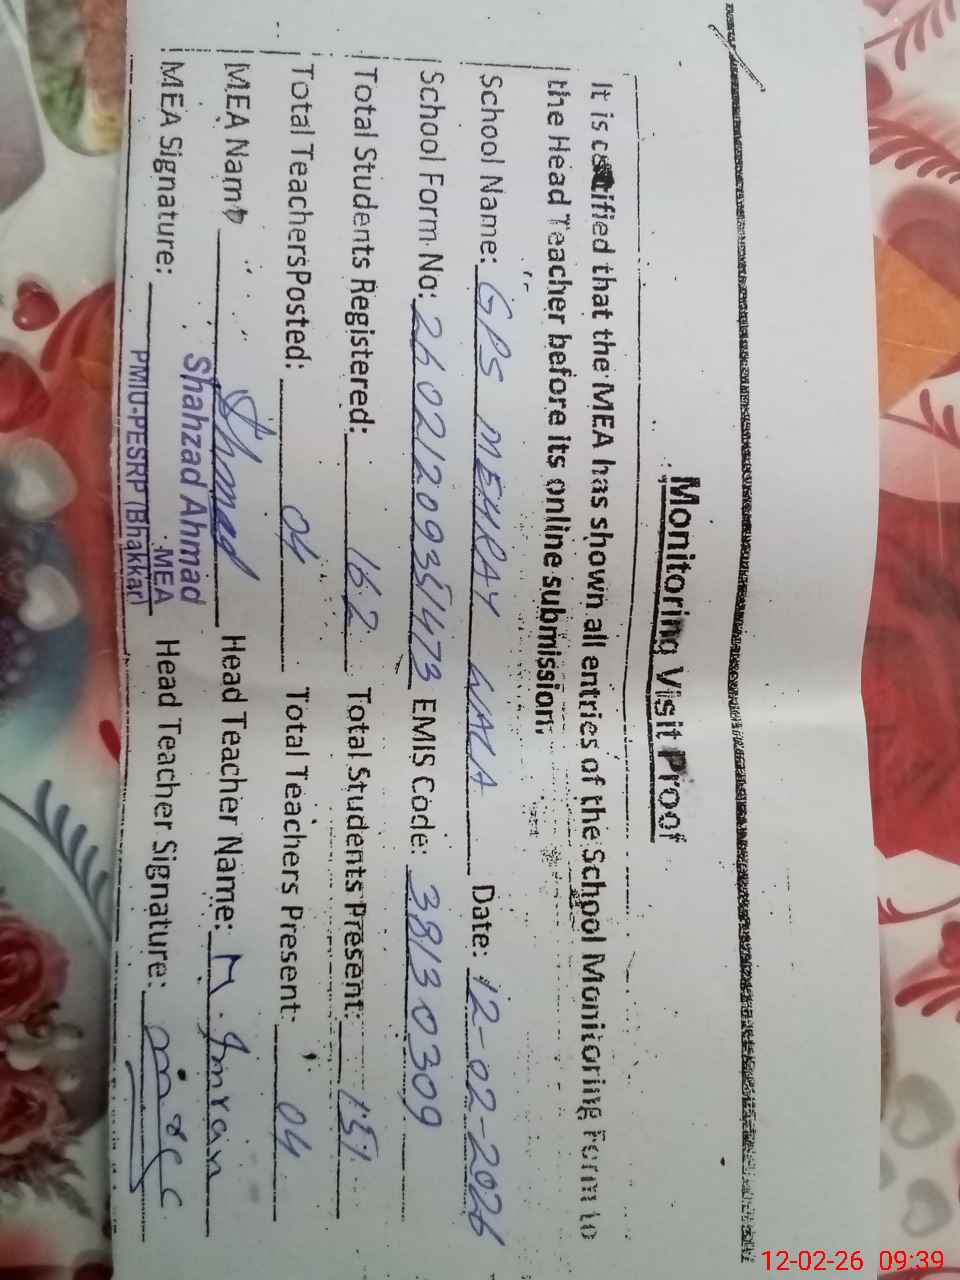 Monitoring Visit Proof
It is certified that the MEA has shown all entries of the School Monitoring Form to
the Head Teacher before its online submission.
School Name: GPS MEHRAY WALA Date: 12-02-2026
School Form No: EMIS Code: 38130309
Total Students Registered: 162 Total Students Present: 151
Total Teachers Posted: 04 Total Teachers Present: 04
MEA Name Ahmad Head Teacher Name: M. Imran
MEA Signature: Shahzad Ahmad Head Teacher Signature:
MEA
PMIU-PESRP (Bhakkar)
12-02-26 09:39